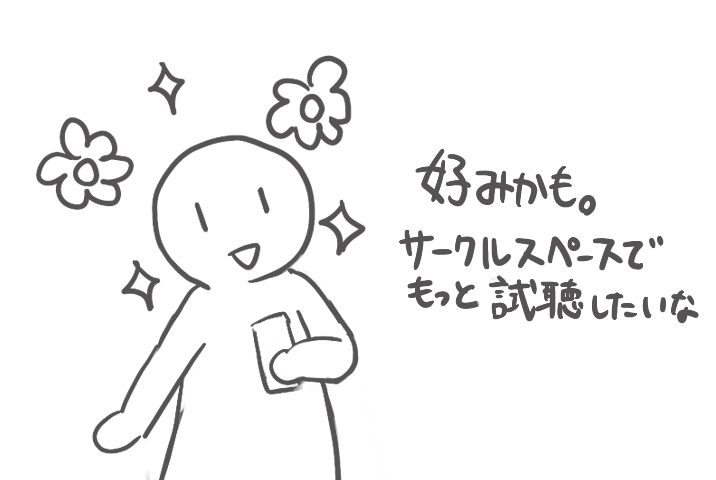 好みかも。
サークルスペースで
もっと試聴したいな